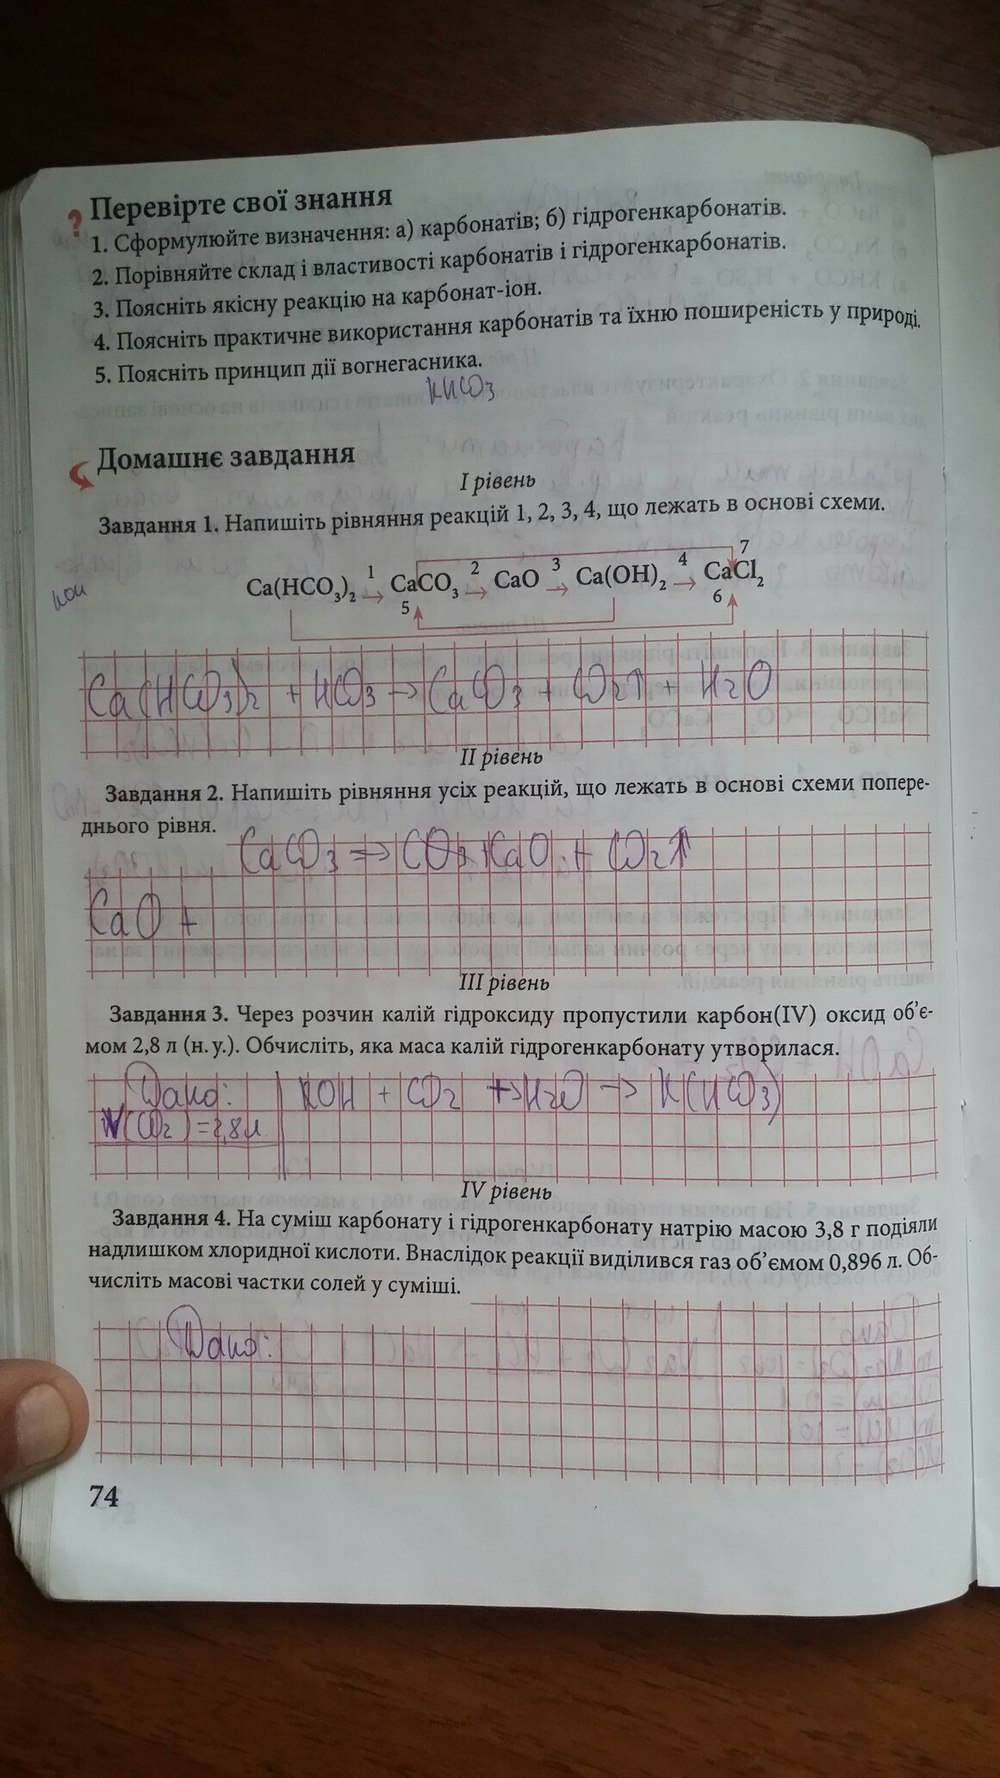 ? Перевірте свої знання
1. Сформулюйте визначення: а) карбонатів; б) гідрогенкарбонатів.
2. Порівняйте склад і властивості карбонатів і гідрогенкарбонатів.
3. Поясніть якісну реакцію на карбонат-іон.
4. Поясніть практичне використання карбонатів та їхню поширеність у природі.
5. Поясніть принцип дії вогнегасника.
KHCO3
Домашнє завдання
І рівень
Завдання 1. Напишіть рівняння реакцій 1, 2, 3, 4, що лежать в основі схеми.
7
Ca(HCO₃)₂ 1→ CaCO₃ 2→ CaO 3→ Ca(OH)₂ 4→ CaCl₂
5 6
Ca(HCO3)2 + HCO3 → CaCO3 + CO2↑ + H2O
ІІ рівень
Завдання 2. Напишіть рівняння усіх реакцій, що лежать в основі схеми попере-
днього рівня.
CaCO3 → CaO + CO2↑
CaO +
ІІІ рівень
Завдання 3. Через розчин калій гідроксиду пропустили карбон(IV) оксид об’є-
мом 2,8 л (н. у.). Обчисліть, яка маса калій гідрогенкарбонату утворилася.
Дано: KOH + CO2 + H2O → K(HCO3)
V(CO2) = 2,8 л
IV рівень
Завдання 4. На суміш карбонату і гідрогенкарбонату натрію масою 3,8 г подіяли
надлишком хлоридної кислоти. Внаслідок реакції виділився газ об’ємом 0,896 л. Об-
числіть масові частки солей у суміші.
Дано:
74